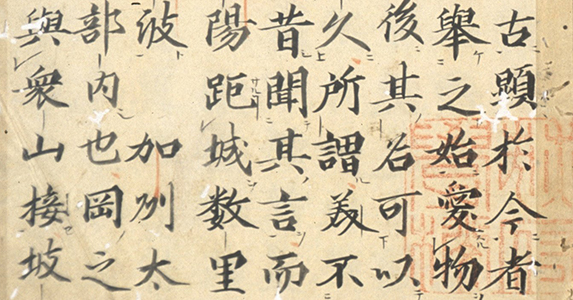 古顕於今者
舉之始愛物
後其名可以
久所謂美不
昔聞其言而
陽距城数里
波 加州太
部内也岡之
與衆山接坡